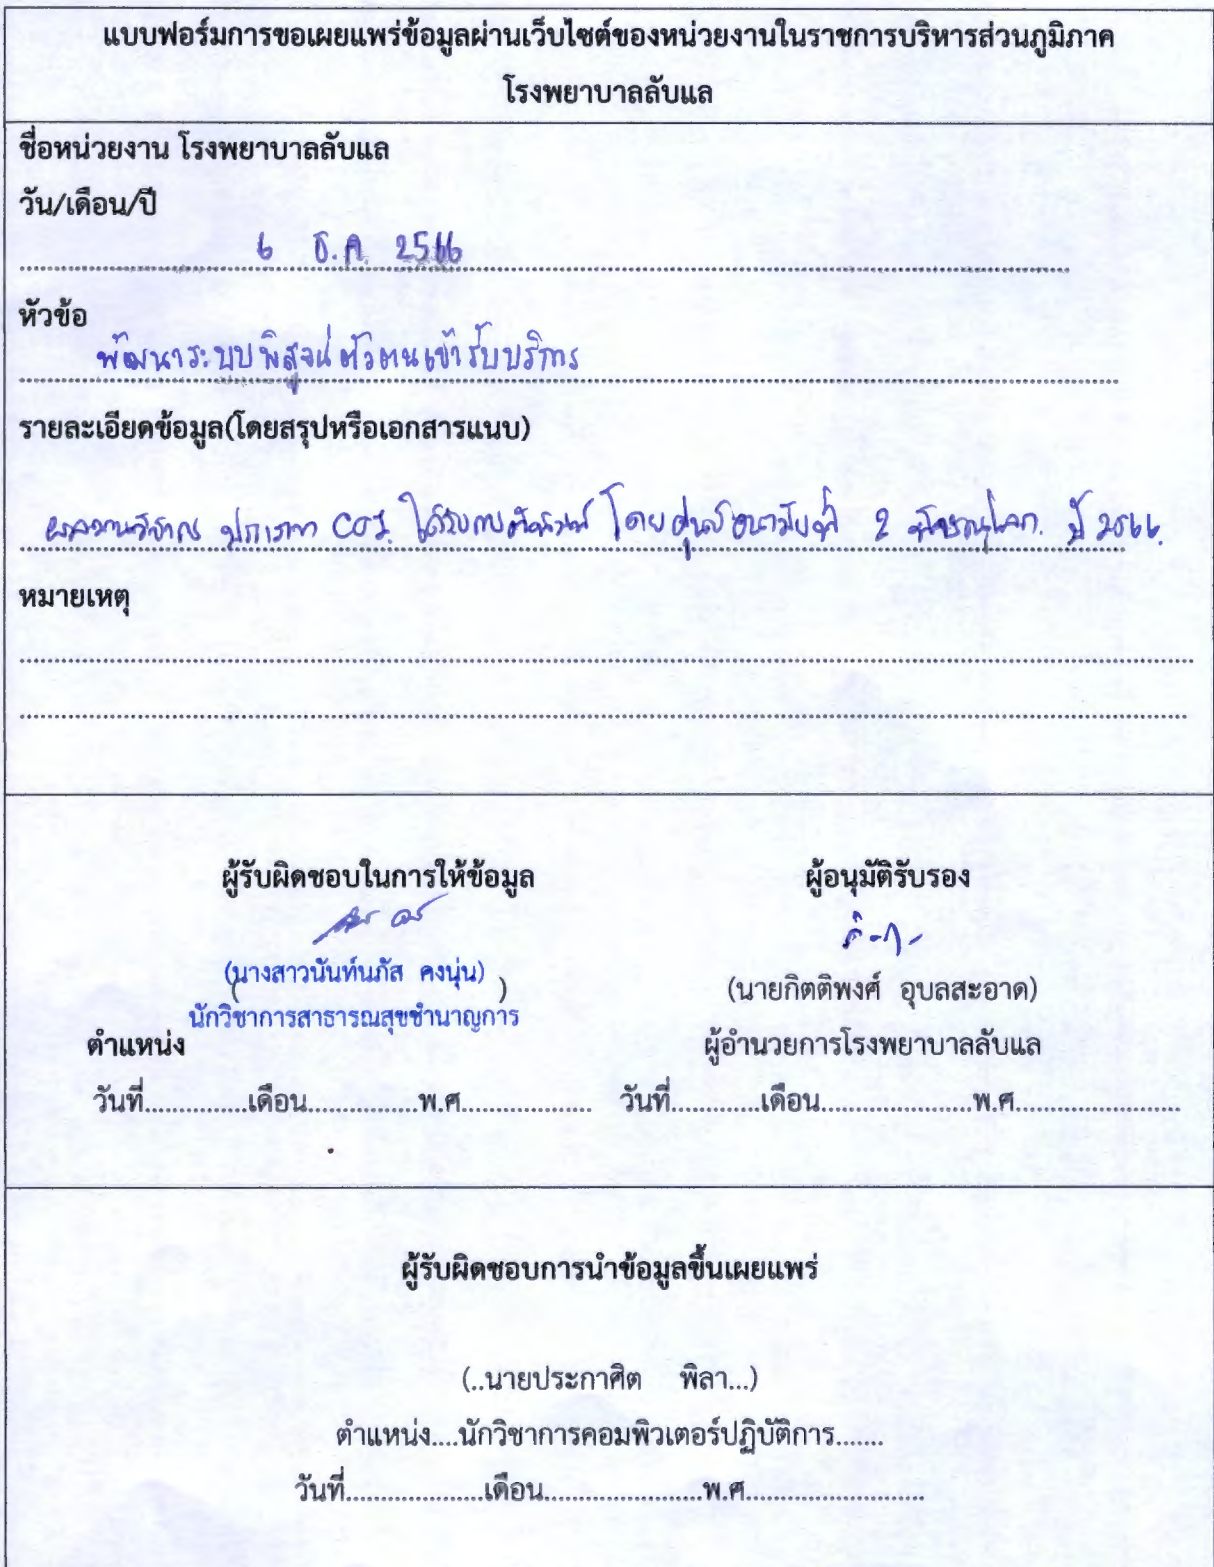 แบบฟอร์มการขอเผยแพร่ข้อมูลผ่านเว็บไซต์ของหน่วยงานในราชการบริหารส่วนภูมิภาค
โรงพยาบาลลับแล
ชื่อหน่วยงาน โรงพยาบาลลับแล
วัน/เดือน/ปี
6 ธ.ค. 2566
หัวข้อ
พัฒนาระบบพิสูจน์ตัวตนเข้ารับบริการ
รายละเอียดข้อมูล(โดยสรุปหรือเอกสารแนบ)
ผลงานวิชาการ ประเภท CQI ได้รับ โดยศูนย์อนามัยที่ 2 พิษณุโลก. ปี 2566.
หมายเหตุ
ผู้รับผิดชอบในการให้ข้อมูล ผู้อนุมัติรับรอง
(นางสาวนันท์นภัส คงนุ่น) (นายกิตติพงศ์ อุบลสะอาด)
นักวิชาการสาธารณสุขชำนาญการ
ตำแหน่ง ผู้อำนวยการโรงพยาบาลลับแล
วันที่..............เดือน................พ.ศ................... วันที่.............เดือน......................พ.ศ........................
ผู้รับผิดชอบการนำข้อมูลขึ้นเผยแพร่
(..นายประกาศิต พิลา...)
ตำแหน่ง....นักวิชาการคอมพิวเตอร์ปฏิบัติการ.......
วันที่....................เดือน.......................พ.ศ..........................